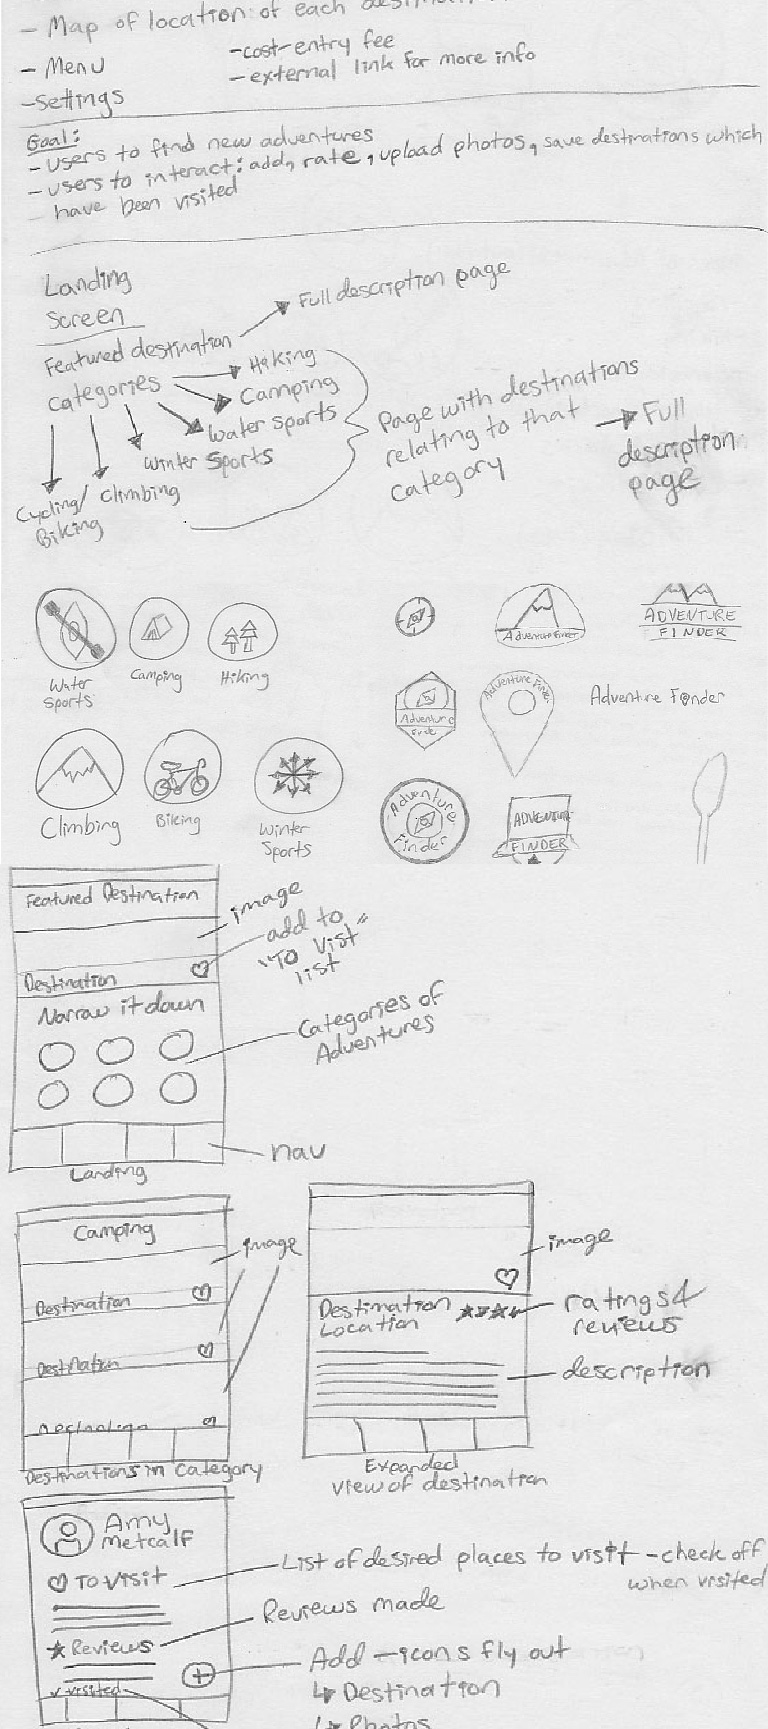 - Map of location of each
- Menu
- Settings
- cost-entry fee
- external link for more info
Goal:
- users to find new adventures
- users to interact: add, rate, upload photos, save destinations which
have been visited
Landing
Screen
Featured destination
Full description page
Categories
Hiking
Camping
Water sports
Winter Sports
Climbing
Cycling/
Biking
Page with destinations
relating to that
category
Full
description
page
Water
Sports
Camping
Hiking
Climbing
Biking
Winter
Sports
Adventure Finder
ADVENTURE
FINDER
Adventure
Finder
Adventure Finder
Adventure Finder
Adventure
Finder
ADVENTURE
FINDER
Featured Destination
image
add to
"To Vist"
list
Destination
Narrow it down
Categories of
Adventures
nav
Landing
Camping
image
Destination
Destination
Destination
Destinations in Category
image
Destination
Location
ratings &
reviews
description
Expanded
view of destination
Amy
Metcalf
To Visit
List of desired places to visit - check off
when visited
Reviews made
Reviews
Add - icons fly out
Destination
Photos
visited